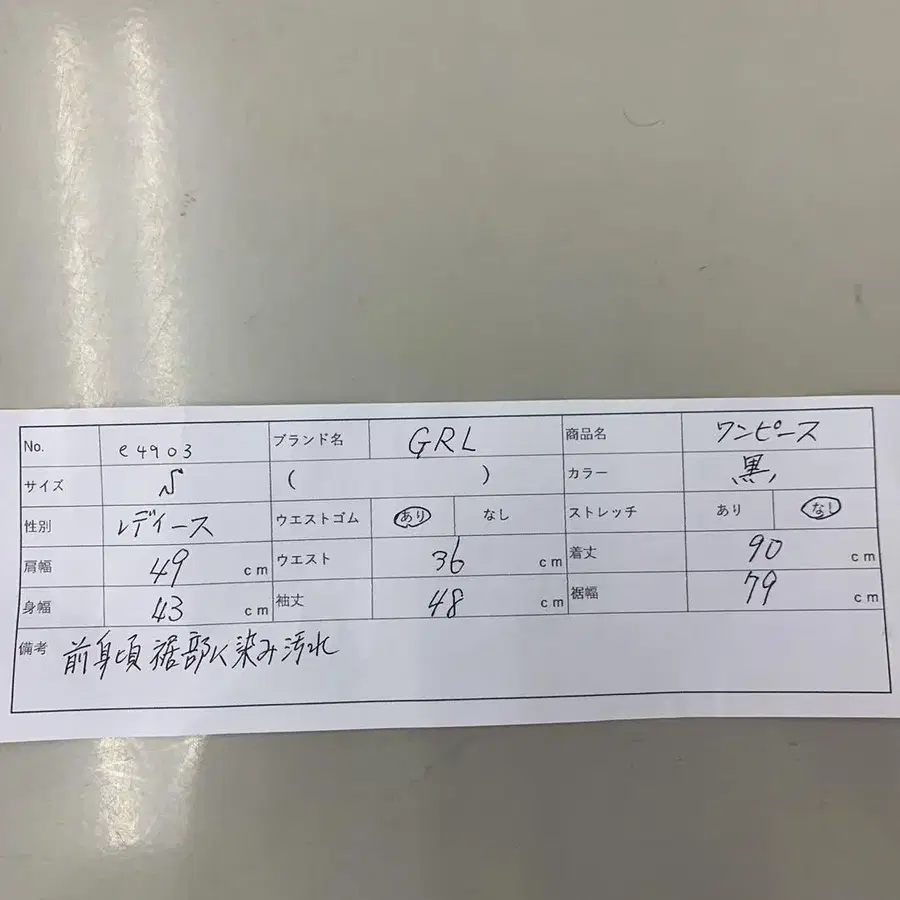 No. e4903 ブランド名 GRL 商品名 ワンピース
サイズ S ( ) カラー 黒
性別 レディース ウエストゴム あり なし ストレッチ あり なし
肩幅 49 cm ウエスト 36 cm 着丈 90 cm
身幅 43 cm 袖丈 48 cm 裾幅 79 cm
備考 前身頃裾部に染み汚れ